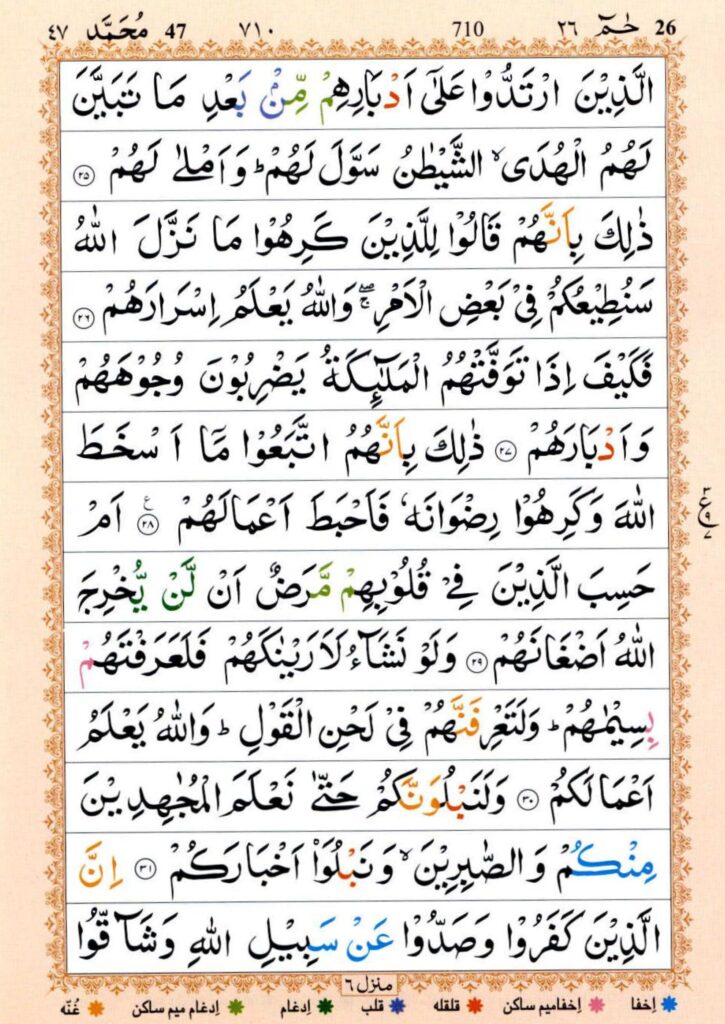 26 حٰمٓ ٢٦ 710 ٧١٠ 47 مُحَمَّد ٤٧
الَّذِيْنَ ارْتَدُّوْا عَلٰٓى اَدْبَارِهِمْ مِّنْۢ بَعْدِ مَا تَبَيَّنَ
لَهُمُ الْهُدَى ۙ الشَّيْطٰنُ سَوَّلَ لَهُمْ ؕ وَاَمْلٰى لَهُمْ ۝٢٥
ذٰلِكَ بِاَنَّهُمْ قَالُوْا لِلَّذِيْنَ كَرِهُوْا مَا نَزَّلَ اللّٰهُ
سَنُطِيْعُكُمْ فِيْ بَعْضِ الْاَمْرِ ۖۚ وَاللّٰهُ يَعْلَمُ اِسْرَارَهُمْ ۝٢٦
فَكَيْفَ اِذَا تَوَفَّتْهُمُ الْمَلٰٓئِكَةُ يَضْرِبُوْنَ وُجُوْهَهُمْ
وَاَدْبَارَهُمْ ۝٢٧ ذٰلِكَ بِاَنَّهُمُ اتَّبَعُوْا مَآ اَسْخَطَ
اللّٰهَ وَكَرِهُوْا رِضْوَانَهٗ فَاَحْبَطَ اَعْمَالَهُمْ ۝٢٨ ع اَمْ
٣ ع ٩ ٧
حَسِبَ الَّذِيْنَ فِيْ قُلُوْبِهِمْ مَّرَضٌ اَنْ لَّنْ يُّخْرِجَ
اللّٰهُ اَضْغَانَهُمْ ۝٢٩ وَلَوْ نَشَآءُ لَاَرَيْنٰكَهُمْ فَلَعَرَفْتَهُمْ
بِسِيْمٰهُمْ ؕ وَلَتَعْرِفَنَّهُمْ فِيْ لَحْنِ الْقَوْلِ ؕ وَاللّٰهُ يَعْلَمُ
اَعْمَالَكُمْ ۝٣٠ وَلَنَبْلُوَنَّكُمْ حَتّٰى نَعْلَمَ الْمُجٰهِدِيْنَ
مِنْكُمْ وَالصّٰبِرِيْنَ ۙ وَنَبْلُوَا۟ اَخْبَارَكُمْ ۝٣١ اِنَّ
الَّذِيْنَ كَفَرُوْا وَصَدُّوْا عَنْ سَبِيْلِ اللّٰهِ وَشَآقُّوا
منزل ٦
اِخفا اِخفامیم ساکن قلقله قلب اِدغام اِدغام میم ساکن غُنّه